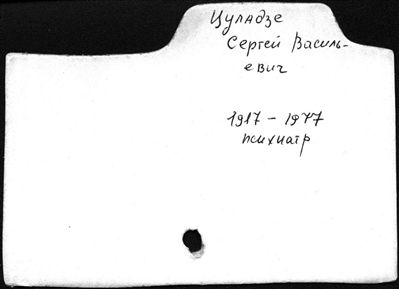 Цуладзе
Сергей Василь-
евич
1917 - 1977
психиатр